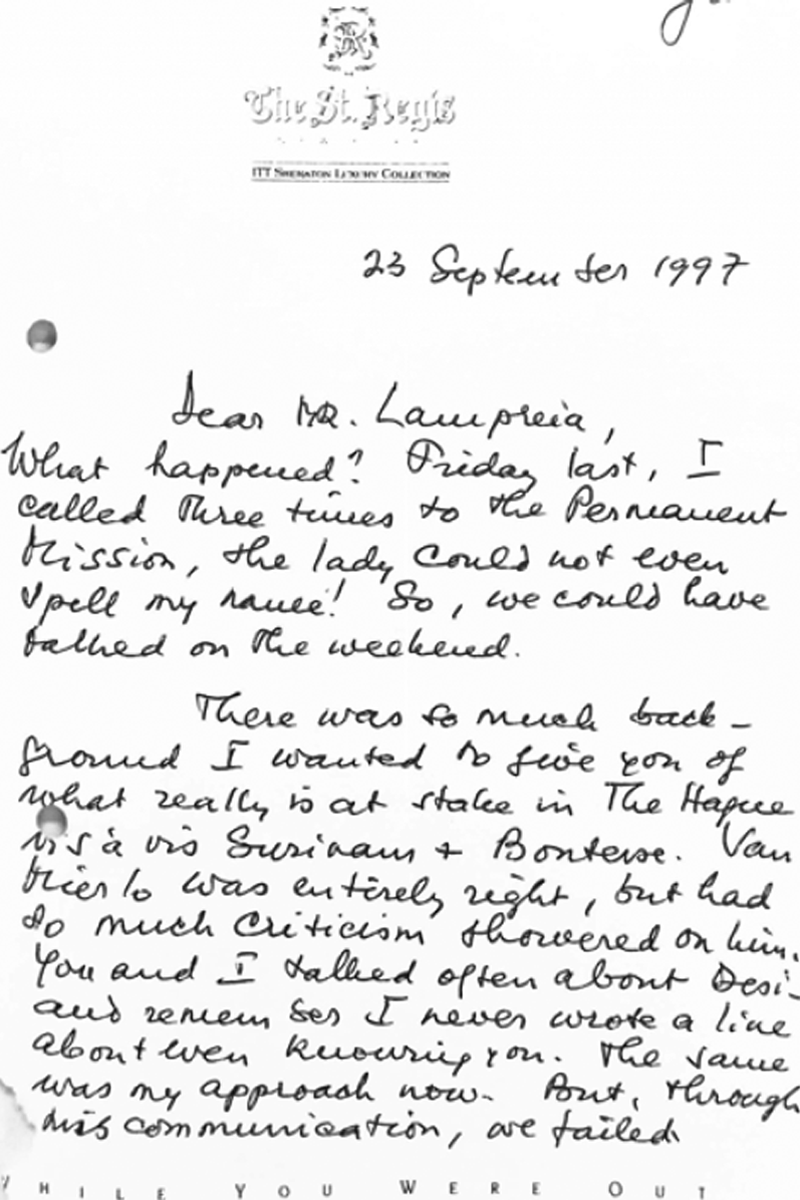 The St. Regis
ITT SHERATON LUXURY COLLECTION
23 September 1997
Dear MR. Lampreia,
What happened? Friday last, I
called three times to the Permanent
Mission, the lady could not even
spell my name! So, we could have
talked on the weekend.
There was so much back-
ground I wanted to give you of
what really is at stake in The Hague
vis à vis Surinam + Bouterse. Van
Mierlo was entirely right, but had
so much criticism showered on him.
You and I talked often about Desi-
and remember I never wrote a line
about even knowing you. The same
was my approach now. But, through
mis communication, we failed
WHILE YOU WERE OUT